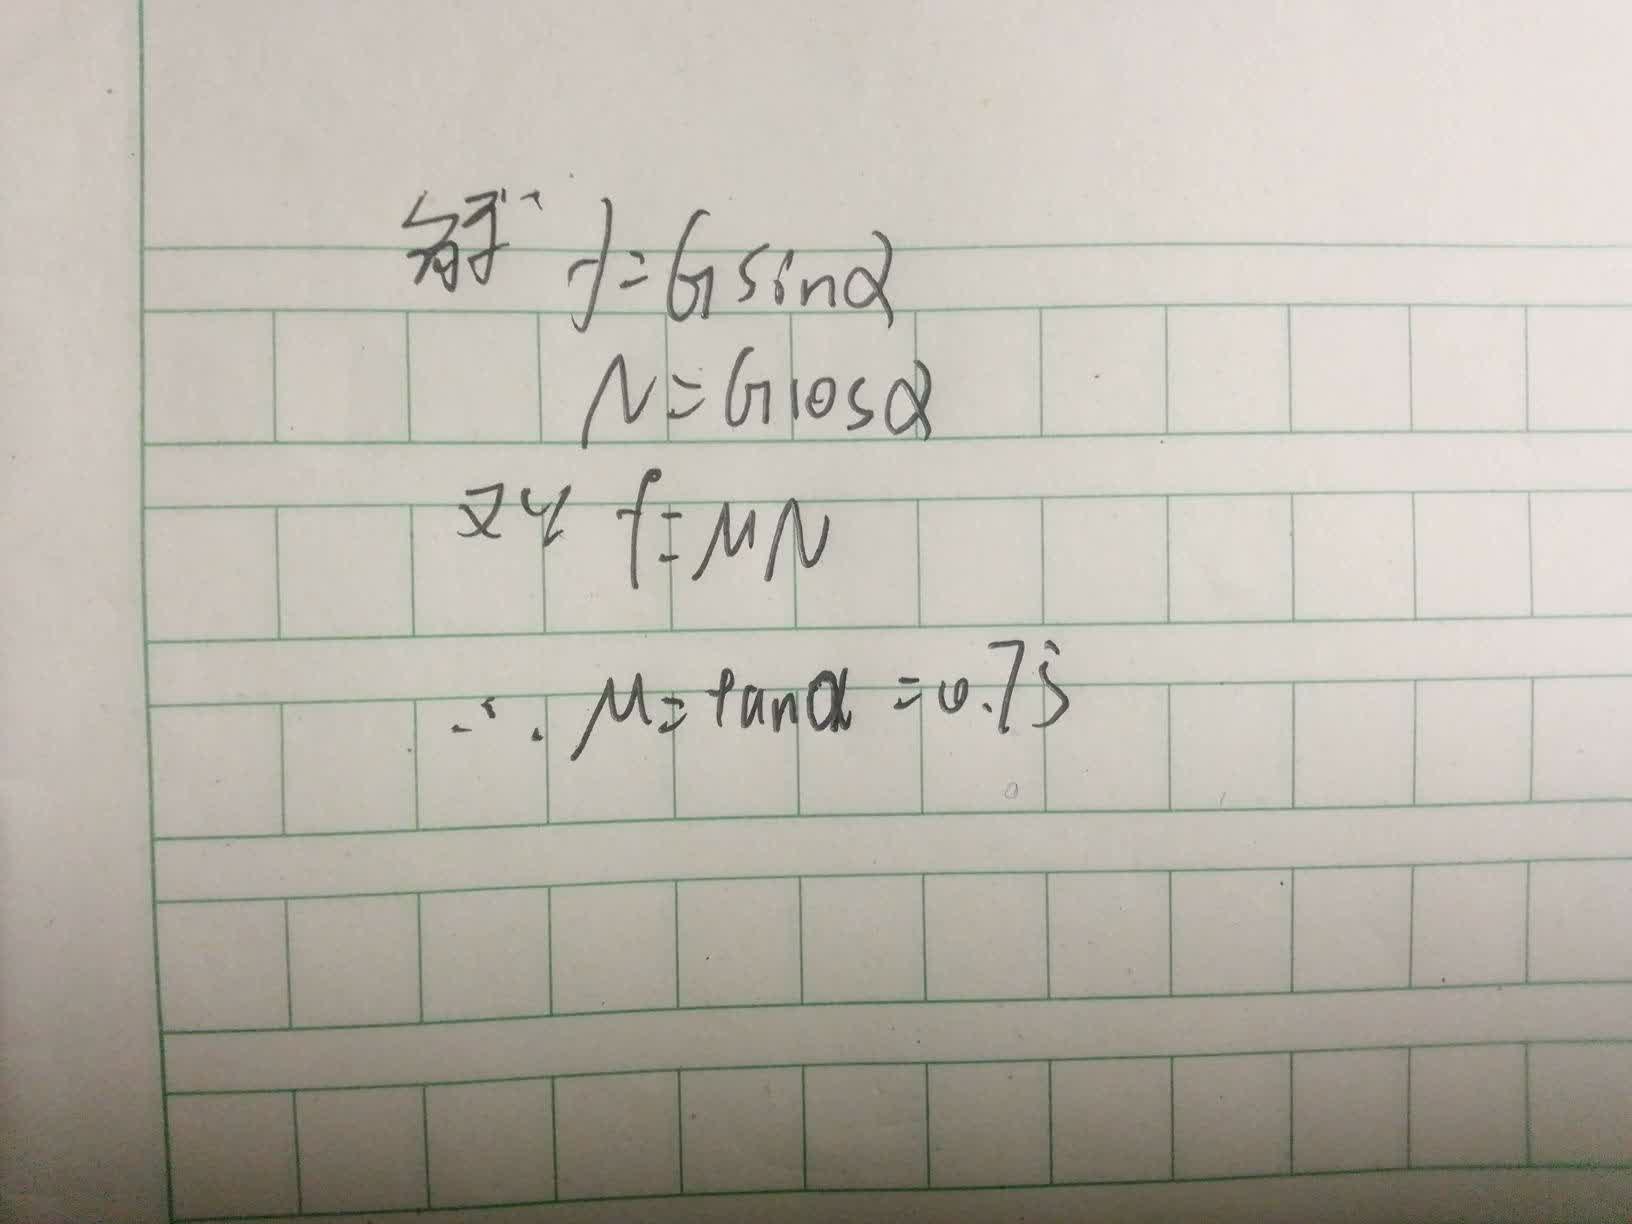 解: f=Gsinα
N=Gcosα
又∵ f=μN
∴ μ=tanα=0.75